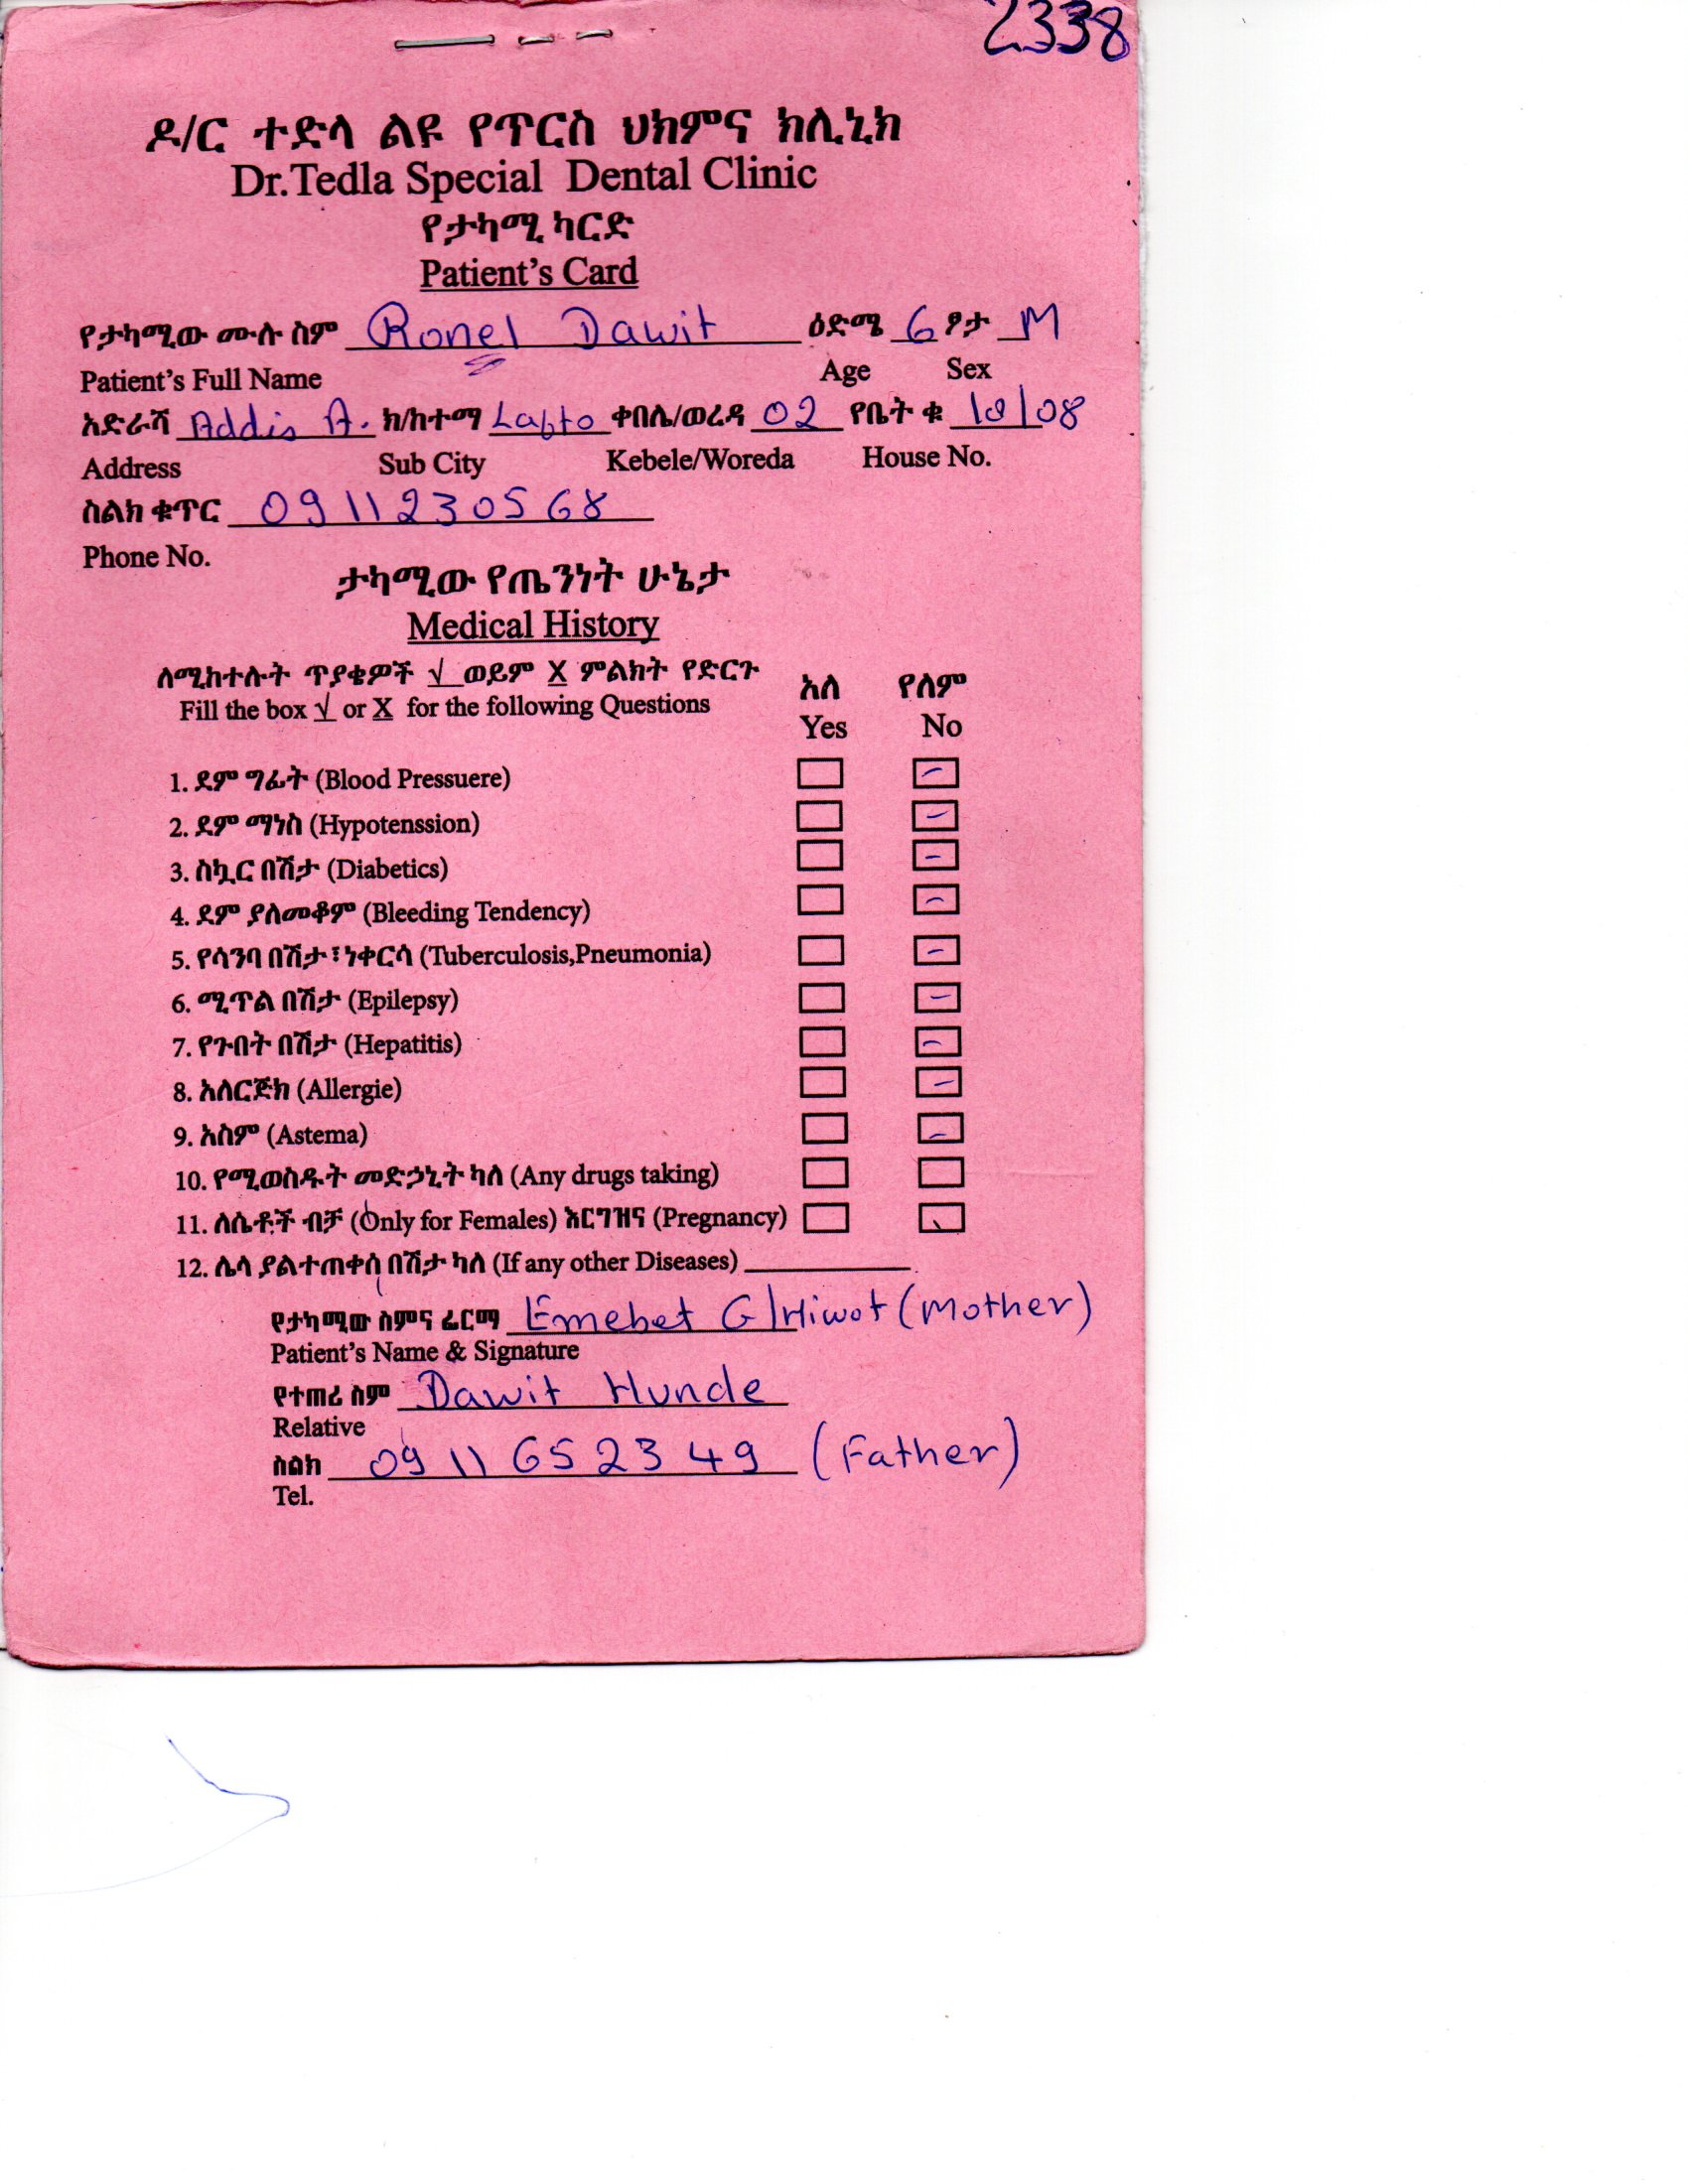 2338
ዶ/ር ተድላ ልዩ የጥርስ ህክምና ክሊኒክ
Dr.Tedla Special Dental Clinic
የታካሚ ካርድ
Patient's Card
የታካሚው ሙሉ ስም Ronel Dawit ዕድሜ 6 ፆታ M
Patient's Full Name Age Sex
አድራሻ Addis A. ክ/ከተማ Lafto ቀበሌ/ወረዳ 02 የቤት ቁ
Address Sub City Kebele/Woreda House No.
ስልክ ቁጥር 0911230568
Phone No.
ታካሚው የጤንነት ሁኔታ
Medical History
ለሚከተሉት ጥያቄዎች √ ወይም X ምልክት የድርጉ አለ የለም
Fill the box √ or X for the following Questions Yes No
1. ደም ግፊት (Blood Pressuere) -
2. ደም ማነስ (Hypotenssion) -
3. ስኳር በሽታ (Diabetics) -
4. ደም ያለመቆም (Bleeding Tendency) -
5. የሳንባ በሽታ፣ነቀርሳ (Tuberculosis,Pneumonia) -
6. ሚጥል በሽታ (Epilepsy) -
7. የጉበት በሽታ (Hepatitis) -
8. አለርጅክ (Allergie) -
9. አስም (Astema) -
10. የሚወስዱት መድኃኒት ካለ (Any drugs taking)
11. ለሴቶች ብቻ (Only for Females) እርግዝና (Pregnancy)
12. ሌላ ያልተጠቀሰ በሽታ ካለ (If any other Diseases)
የታካሚው ስምና ፊርማ Emebet G/Hiwot (Mother)
Patient's Name & Signature
የተጠሪ ስም Dawit Hunde
Relative
ስልክ 0911652349 (Father)
Tel.